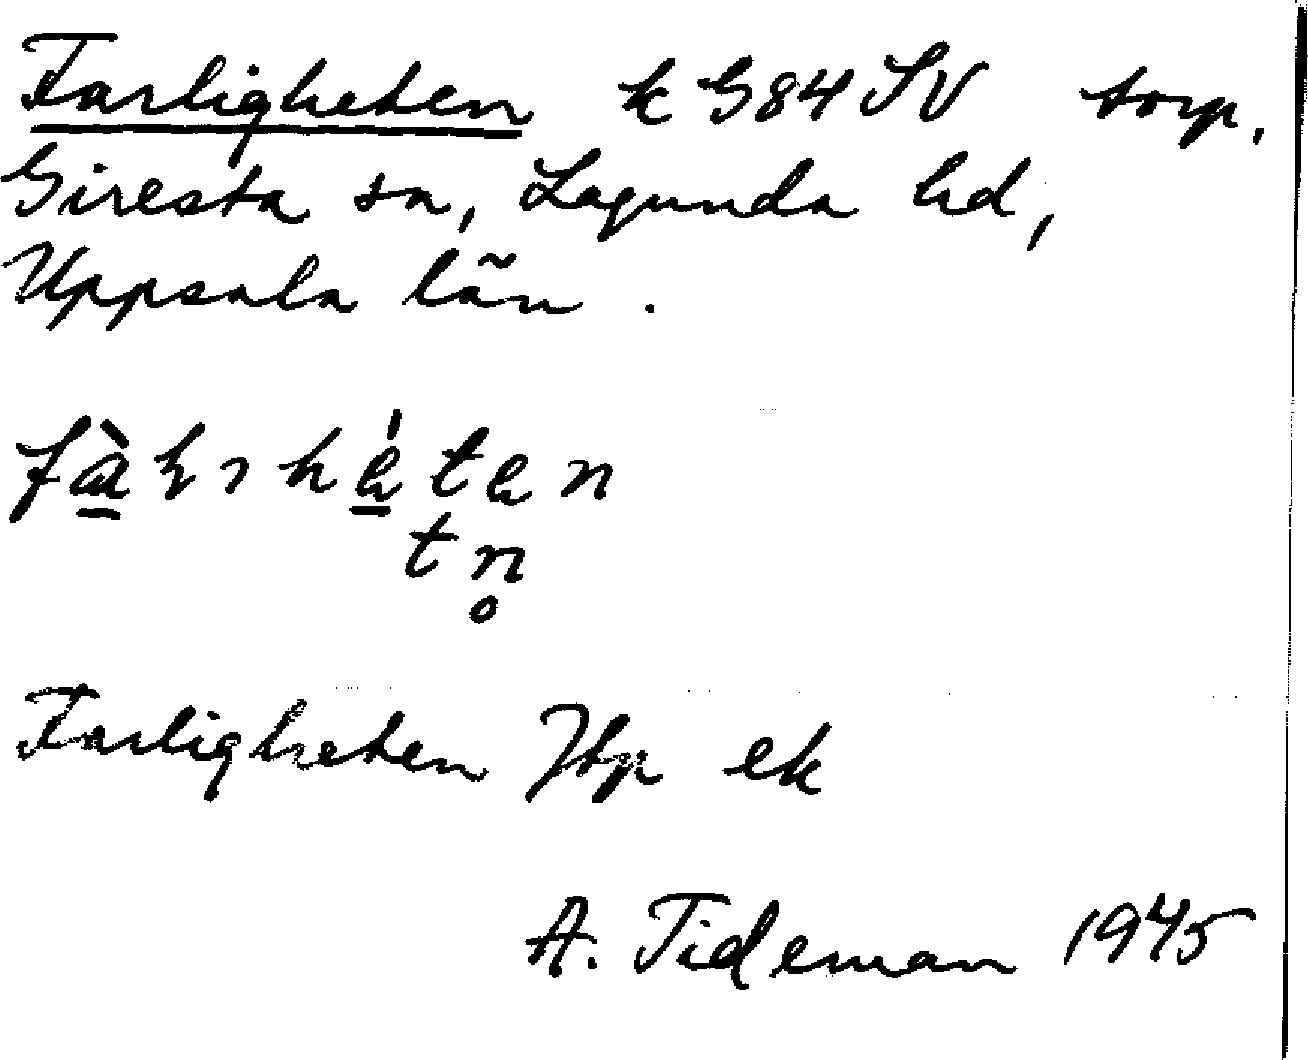 Farligheten k G84 SV torp.
Giresta sn, Lagunda hd,
Uppsala län.
tn
Farligheten Jbp ek
A. Tideman 1945